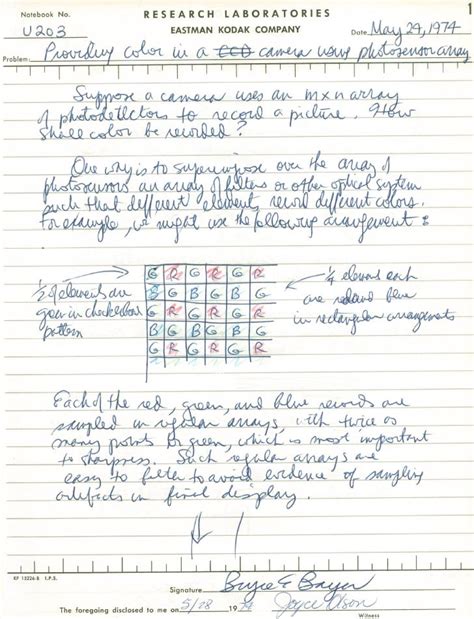 1
Notebook No. RESEARCH LABORATORIES
U203 EASTMAN KODAK COMPANY Date May 29, 1974
Problem: Providing color in a CCD camera using photosensor array
Suppose a camera uses an m x n array
of photodetectors to record a picture. How
shall color be recorded?
One way is to superimpose over the array of
photosensors an array of filters or other optical system
such that different elements record different colors.
For example, we might use the following arrangement:
G R G R G R
B G B G B G
G R G R G R
B G B G B G
G R G R G R
1/2 of elements are
green in checkerboard
pattern
1/4 elements each
are red and blue
in rectangular arrangements
Each of the red, green, and blue records are
sampled in regular arrays, with twice as
many points for green, which is most important
to sharpness. Such regular arrays are
easy to filter to avoid evidence of sampling
artifacts in final display.
KP 13226-B I.P.S.
Signature Bryce E Bayer
The foregoing disclosed to me on 5/28 1974 Joyce Olson
Witness